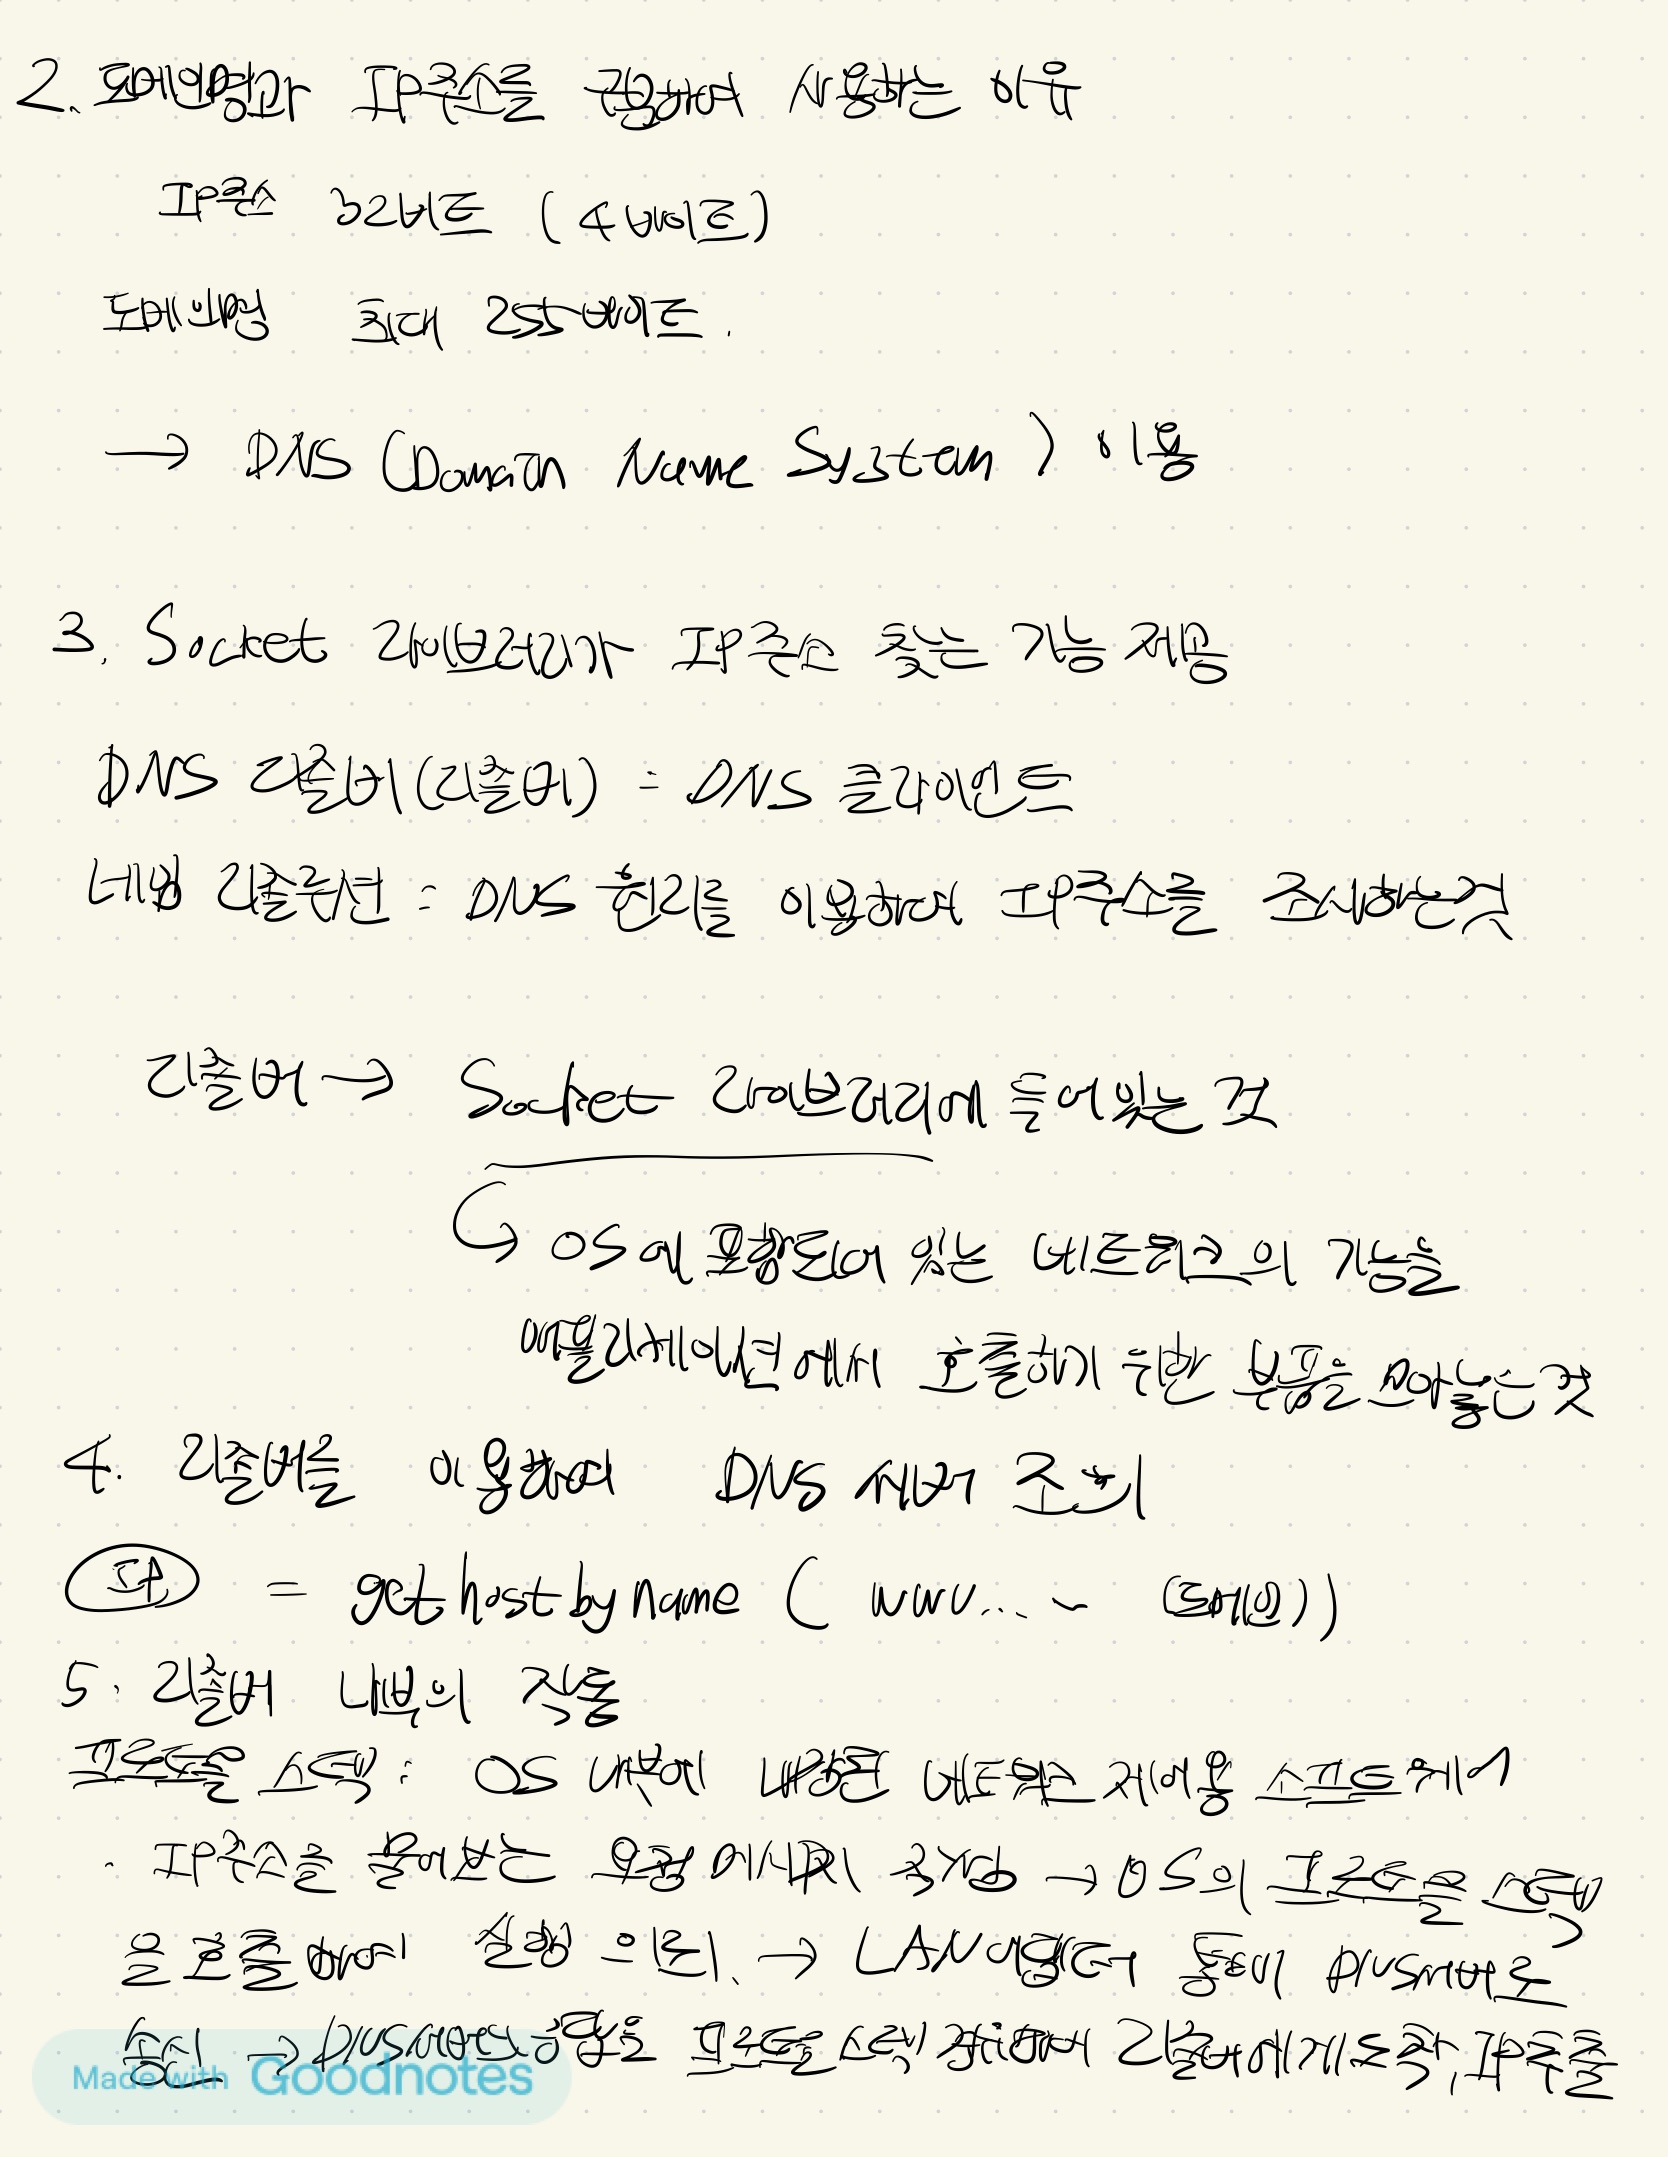 2. 도메인명과 IP주소를 구분하여 사용하는 이유
IP주소 32비트 (4바이트)
도메인명 최대 255바이트.
→ DNS (Domain Name System) 이용
3. Socket 라이브러리가 IP주소 찾는 기능 제공
DNS 리졸버(리졸버) = DNS 클라이언트
네임 리졸루션 = DNS 원리를 이용하여 IP주소를 조사하는것
리졸버 → Socket 라이브러리에 들어있는 것
↳ OS에 포함되어 있는 네트워크의 기능을
애플리케이션에서 호출하기 위한 부품을 모아놓는것
4. 리졸버를 이용하여 DNS 서버 조회
IP = gethostbyname ( www... ~ (도메인))
5. 리졸버 내부의 작동
프로토콜 스택 : OS 내부에 내장된 네트워크 제어용 소프트웨어
· IP주소를 물어보는 요청 메시지 작성 → OS의 프로토콜 스택
을 호출하여 실행 의뢰. → LAN어댑터 통해 DNS서버로
송신 → DNS서버의 응답은 프로토콜 스택 경유하여 리졸버에게 도착, IP주출
Made with Goodnotes